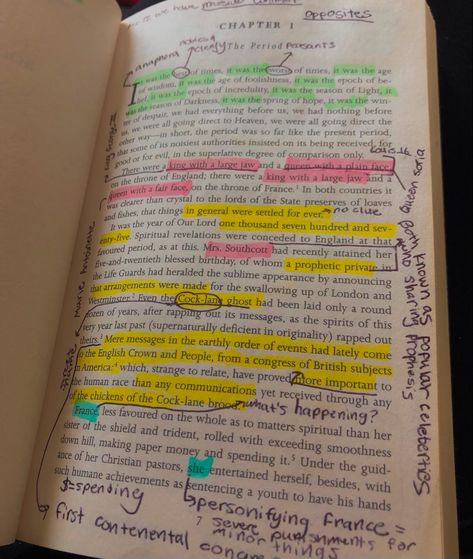 opposites
CHAPTER I
anaphora
The Period
peasants
It was the best of times, it was the worst of times, it was the age
of wisdom, it was the age of foolishness, it was the epoch of be-
lief, it was the epoch of incredulity, it was the season of Light, it
was the season of Darkness, it was the spring of hope, it was the win-
ter of despair, we had everything before us, we had nothing before
us, we were all going direct to Heaven, we were all going direct the
other way—in short, the period was so far like the present period,
that some of its noisiest authorities insisted on its being received, for
good or for evil, in the superlative degree of comparison only.
There were a king with a large jaw and a queen with a plain face,
on the throne of England; there were a king with a large jaw and a
queen with a fair face, on the throne of France.¹ In both countries it
was clearer than crystal to the lords of the State preserves of loaves
and fishes, that things in general were settled for ever.
no clue
It was the year of Our Lord one thousand seven hundred and sev-
enty-five. Spiritual revelations were conceded to England at that
favoured period, as at this. Mrs. Southcott had recently attained her
five-and-twentieth blessed birthday, of whom a prophetic private in
the Life Guards had heralded the sublime appearance by announcing
that arrangements were made for the swallowing up of London and
Westminster.² Even the Cock-lane ghost had been laid only a round
dozen of years, after rapping out its messages, as the spirits of this
very year last past (supernaturally deficient in originality) rapped out
theirs.³ Mere messages in the earthly order of events had lately come
to the English Crown and People, from a congress of British subjects
in America:⁴ which, strange to relate, have proved more important to
the human race than any communications yet received through any
of the chickens of the Cock-lane brood.
what's happening?
France, less favoured on the whole as to matters spiritual than her
sister of the shield and trident, rolled with exceeding smoothness
down hill, making paper money and spending it.⁵ Under the guid-
ance of her Christian pastors, she entertained herself, besides, with
such humane achievements as sentencing a youth to have his hands
$=spending
personifying france =
severe punishments for
minor things
first contenental
Marie Antoinette
Queen
Both known as popular celeberties
sharing prophesis